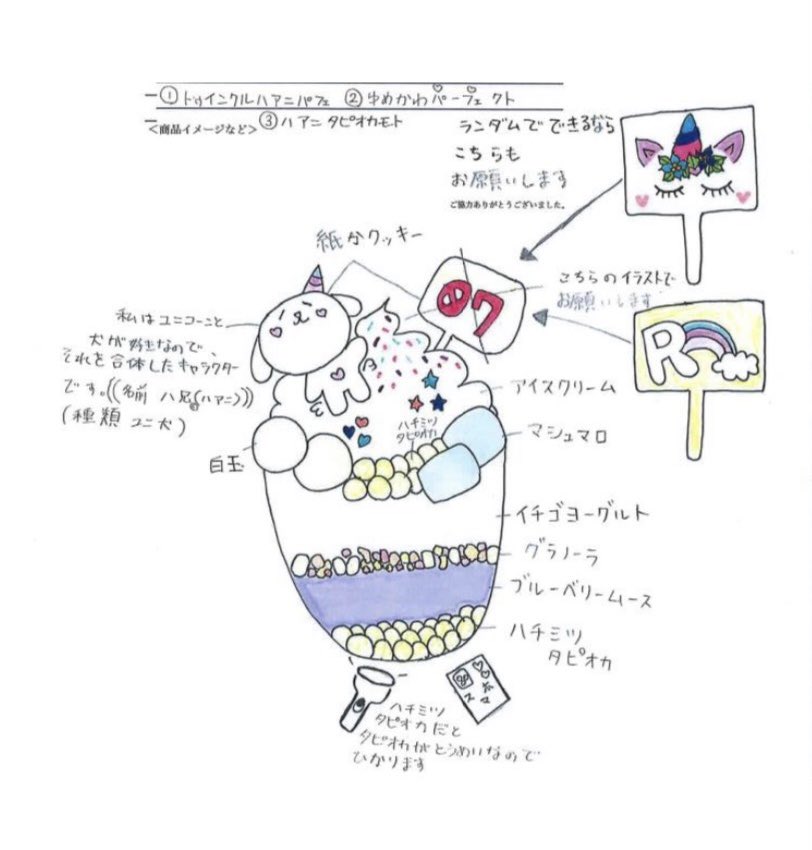 ①トゥインクルハアニパフェ ②ゆめかわパーフェクト
<商品イメージなど> ③ハアニタピオカモト
ランダムでできるなら
こちらも
お願いします
ご協力ありがとうございました。
紙かクッキー
こちらのイラストで
お願いします
私はユニコーンと
犬が好きなので、
それを合体したキャラクター
です。((名前 八兄(ハアニ)))
(種類 ユニ犬)
アイスクリーム
ハチミツ
タピオカ
マシュマロ
白玉
イチゴヨーグルト
グラノーラ
R
ブルーベリームース
ハチミツ
タピオカ
ハチミツ
タピオカだと
タピオカがとうめいなので
ひかります